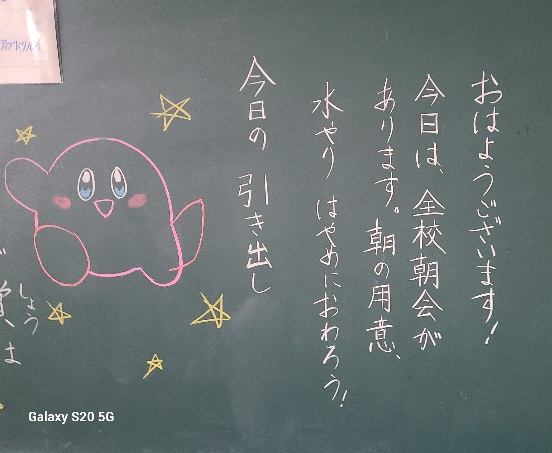 おはようございます!
今日は、全校朝会が
あります。朝の用意、
水やり はやめにおわろう!
今日の 引き出し
しょう
は
Galaxy S20 5G